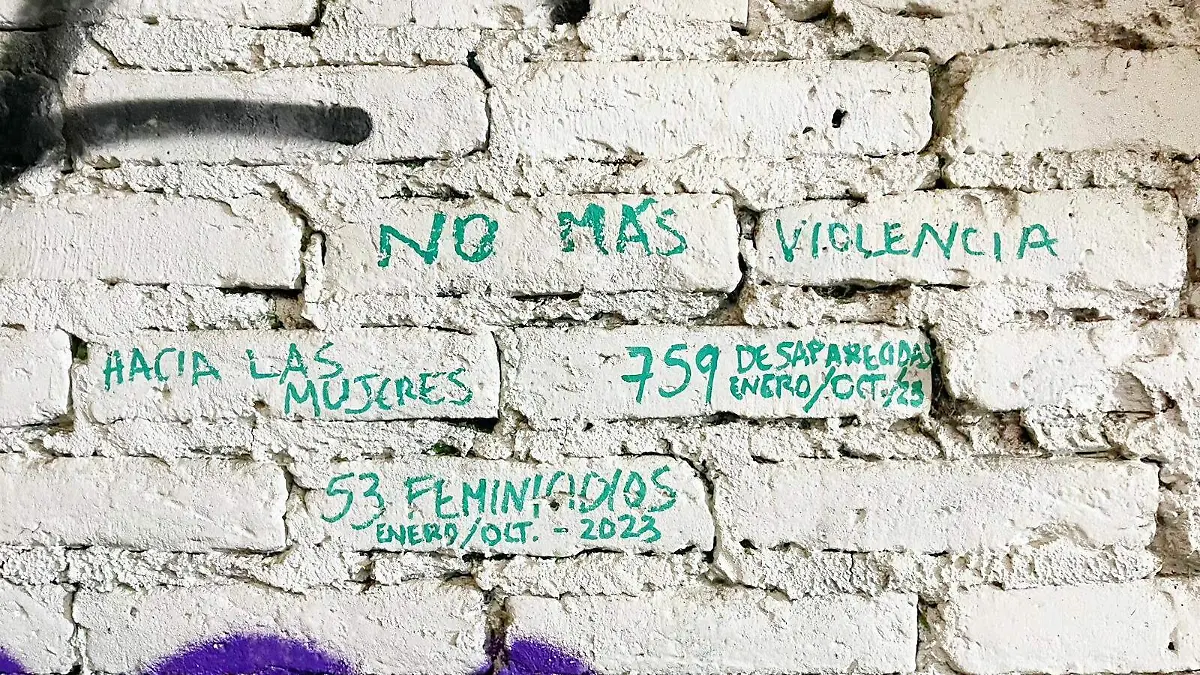 NO MÁS VIOLENCIA
HACIA LAS
MUJERES
759 DESAPARECIDAS
ENERO/OCT./23
53 FEMINICIDIOS
ENERO/OCT. - 2023